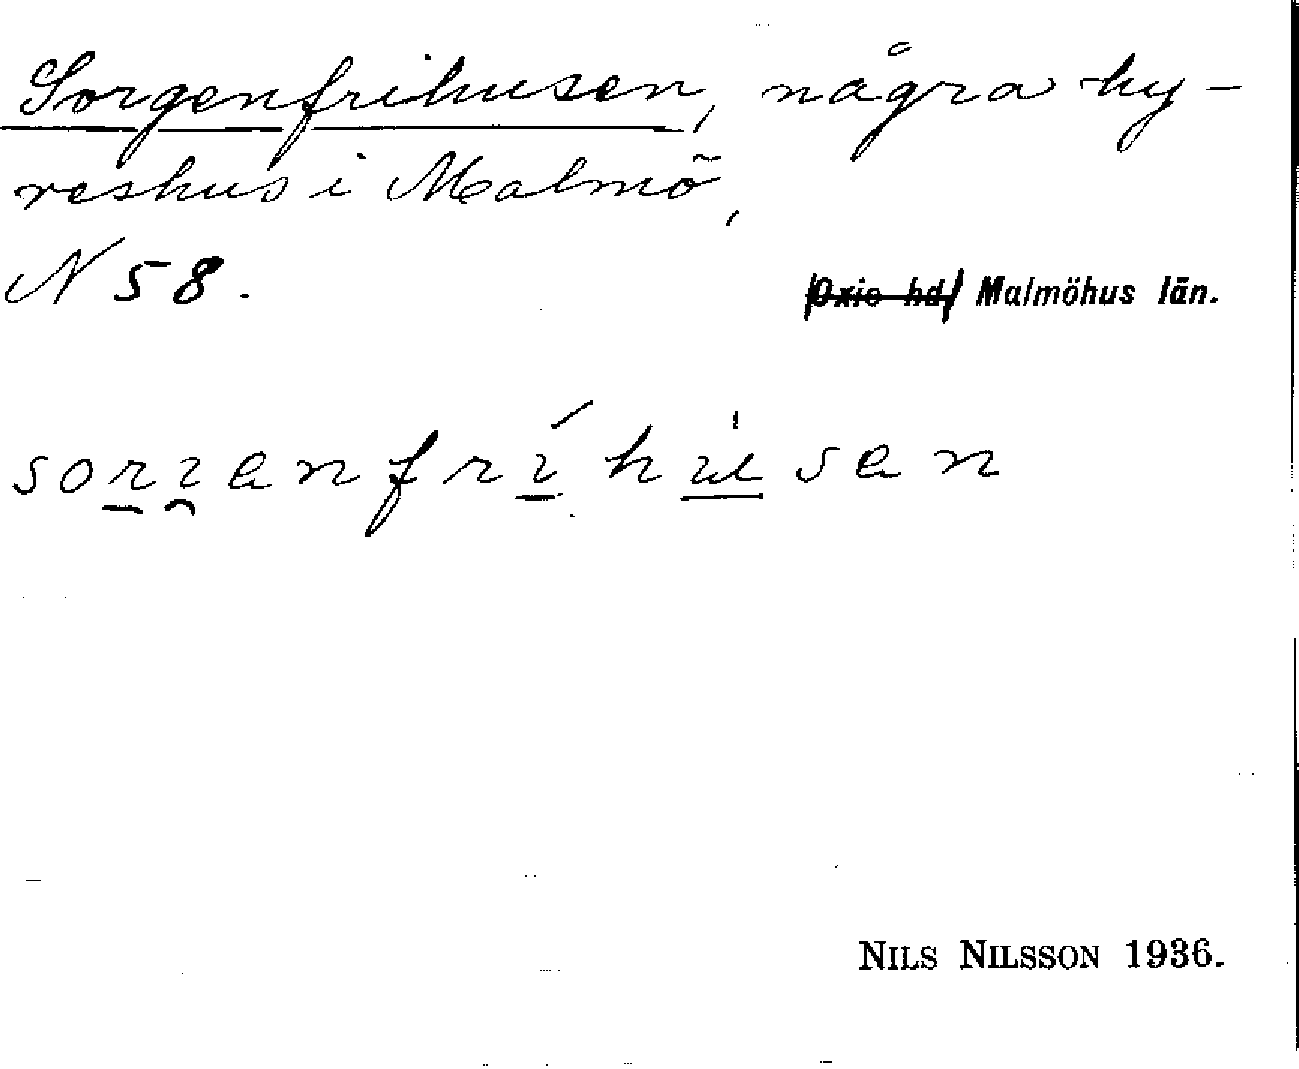 Sorgenfrihusen, några hy-
reshus i Malmö,
N 58.
Oxie hd, Malmöhus län.
sorɪenfrí hu̇sen
NILS NILSSON 1936.